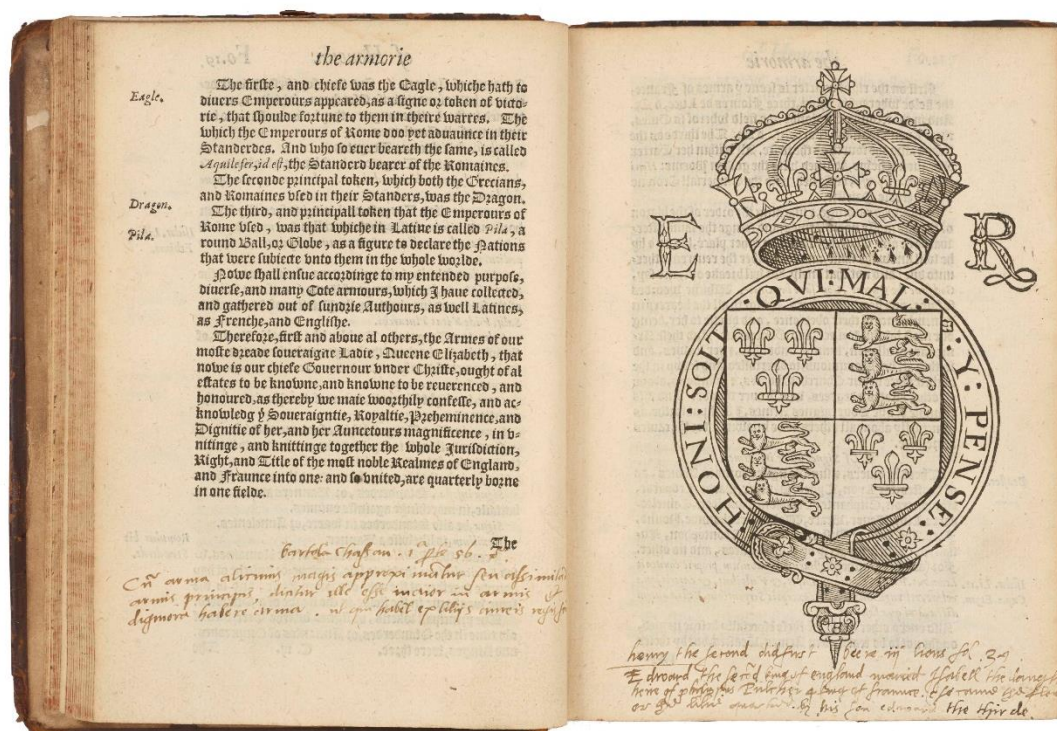 the armorie
Eagle.
The firste, and chiefe was the Eagle, whiche hath to
diuers Emperours appeared, as a signe or token of victo-
rie, that shoulde fortune to them in theire warres. The
which the Emperours of Rome doo yet aduaunce in their
Standerdes. And who so euer beareth the same, is called
Aquilefer, id est, the Standerd bearer of the Romaines.
The seconde principal token, which both the Grecians,
and Romaines vsed in their Standers, was the Dragon.
Dragon.
The third, and principall token that the Emperours of
Pila.
Rome vsed, was that whiche in Latine is called Pila, a
round Ball, or Globe, as a figure to declare the Nations
that were subiecte vnto them in the whole worlde.
Nowe shall ensue accordinge to my entended purpose,
diuerse, and many Cote armours, which I haue collected,
and gathered out of sundrie Authours, as well Latines,
as Frenche, and Englishe.
Therefore, first and aboue al others, the Armes of our
moste dreade soueraigne Ladie, Queene Elizabeth, that
nowe is our chiefe Gouernour vnder Christe, ought of al
estates to be knowne, and knowne to be reuerenced, and
honoured, as thereby we maie woorthily confesse, and ac-
knowledg ẏ Soueraigntie, Royaltie, Preheminence, and
Dignitie of her, and her Auncetours magnificence, in v-
nitinge, and knittinge together the whole Jurisdiction,
Right, and Title of the most noble Realmes of England,
and Fraunce into one: and so vnited, are quarterly borne
in one fielde.
The
arma alicuius magis
armis principis, dicitur ille esse in armis
habere arma
E R
HONI : SOIT : QVI : MAL : Y : PENSE :
henry the second lions 
Edward the king of england maried Isabell the
of france
his son edward the thirde